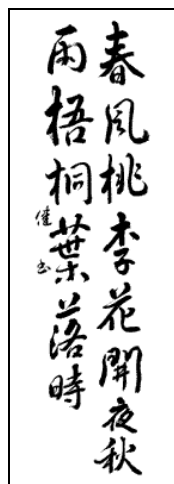 春風桃李花開夜秋
雨梧桐葉落時
健书